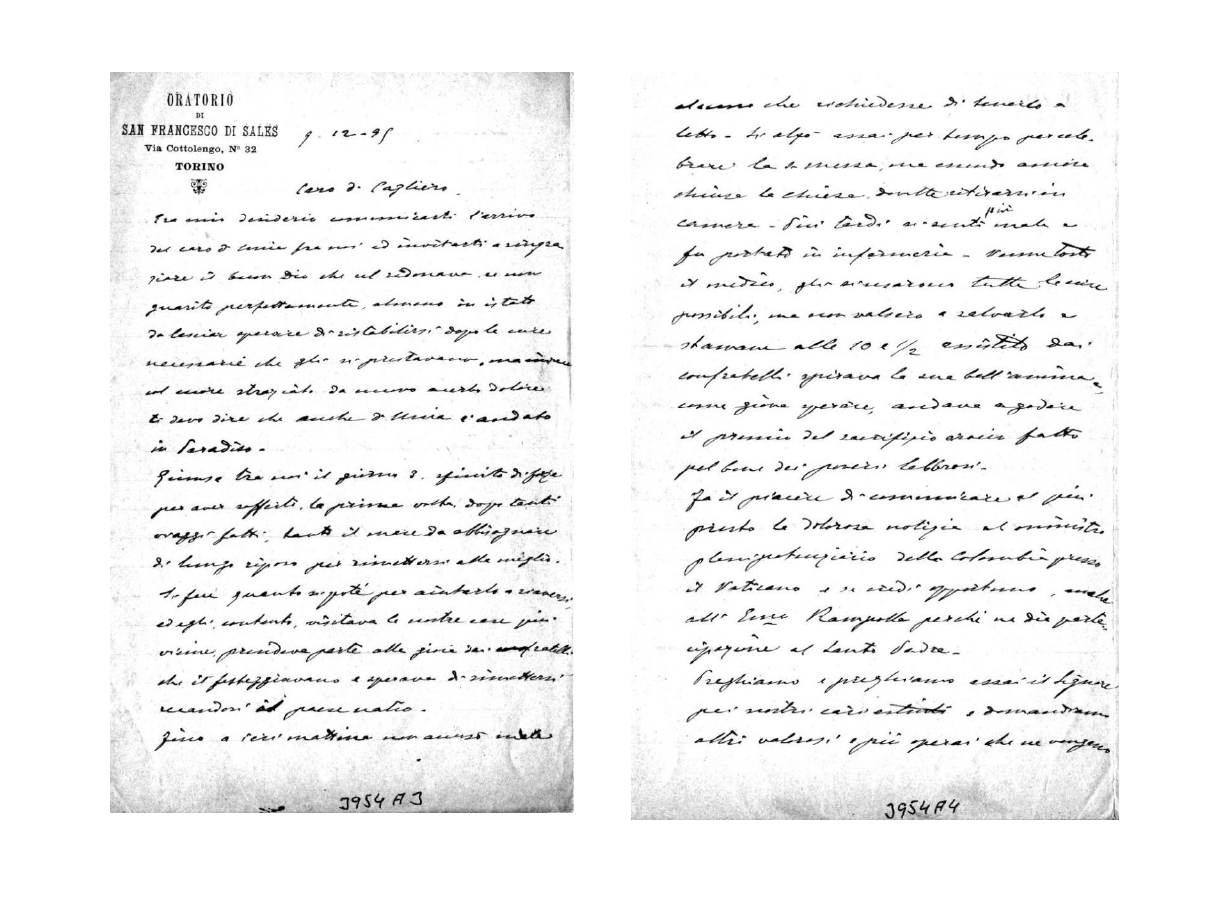 ORATORIO
DI
SAN FRANCESCO DI SALES
Via Cottolengo, N° 32
TORINO
9-12-95
Caro D. Cagliero,
Era mio desiderio comunicarti l'arrivo
del caro D. Unia fra noi ed invitarti a ringra
ziare il buon Dio che cel ridonava, se non
guarito perfettamente, almeno in istato
da lasciar sperare di ristabilirsi dopo le cure
necessarie che gli si prestavano, ma invece
col cuore straziato da nuovo acerbo dolore
ti devo dire che anche D. Unia è andato
in Paradiso.
Giunse tra noi il giorno 3. sfinito di forze
per aver sofferto, la prima volta, dopo tanti
viaggi fatti, tanto il mare da abbisognare
di lungo riposo per rimettersi alla meglio.
Si fece quanto si poté per aiutarlo a riaversi,
ed egli, contento, visitava le nostre case più
vicine, prendeva parte alla gioia dei confratelli
che il festeggiavano e sperava di rimettersi
recandosi al paese natio.
Fino a ieri mattina non accusò male
alcuno che richiedesse di tenerlo a
letto. Si alzò assai per tempo per cele-
brare la S. Messa, ma essendo ancora
chiusa la chiesa, dovette ritirarsi in
camera. Più tardi si sentì più male e
fu portato in infermeria. Venne tosto
il medico, gli si usarono tutte le cure
possibili, ma non valsero a salvarlo e
stamane alle 10 e 1/2 assistito dai
confratelli spirava la sua bell'anima e
come giova sperare, andava a godere
il premio del sacrifizio eroico fatto
pel bene dei poveri lebbrosi.
Fa il piacere di comunicare al più
presto la dolorosa notizia al ministro
plenipotenziario della Colombia presso
il Vaticano e se credi opportuno, anche
all' Emo Rampolla perché ne dia parte-
cipazione al Santo Padre.
Preghiamo e preghiamo assai il Signore
pei nostri cari estinti e domandiamo
altri valorosi e più operai che ne vengano
3954A3
3954A4